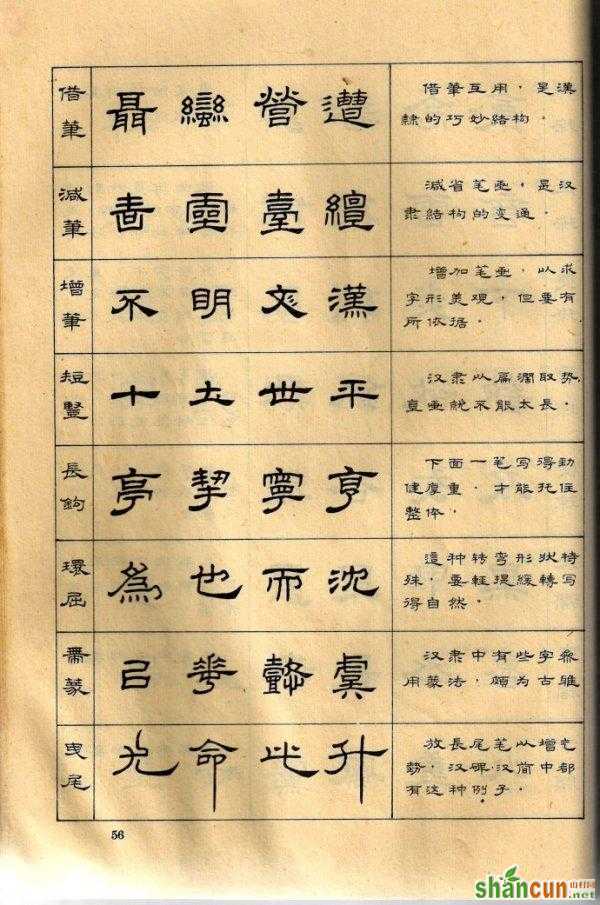 借筆
聶 蠻 營 遭
借筆互用，是漢
隸的巧妙結构。
減筆
靈 臺 繵
減省笔画，是汉
隶結构的变通。
增筆
不 明 文 漢
增加笔画，以求
字形美观，但要有
所依据。
短豎
十 土 世 平
汉隶以扁濶取势，
豎画就不能太長。
長鉤
亭 挈 寧 亨
下面一笔写得劲
健厚重，才能托住
整体。
環屈
為 也 而 沈
這种转弯形狀特
殊，要轻提緩轉写
得自然。
篆
㠯 華 懿 虞
汉隶中有些字参
用篆法，颇为古雅
曳尾
光 命 此 升
放長尾笔以增气
勢，汉碑汉简中都
有这种例子。
56
shancun
山村网
.net